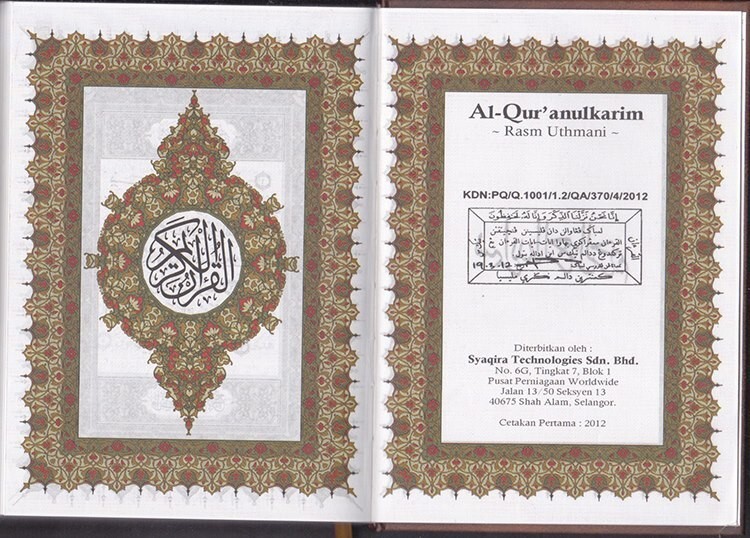 القرآن الكريم
Al-Qur'anulkarim
~ Rasm Uthmani ~
KDN:PQ/Q.1001/1.2/QA/370/4/2012
إنا نحن نزلنا الذكر وإنا له لحفظون
Diterbitkan oleh :
Syaqira Technologies Sdn. Bhd.
No. 6G, Tingkat 7, Blok 1
Pusat Perniagaan Worldwide
Jalan 13/50 Seksyen 13
40675 Shah Alam, Selangor.
Cetakan Pertama : 2012